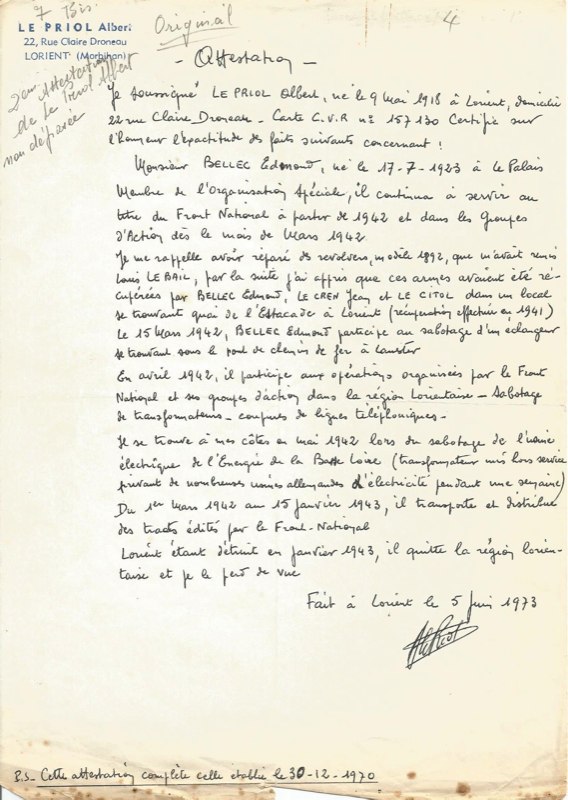 7 Bis
LE PRIOL Albert
22, Rue Claire Droneau
LORIENT (Morbihan)
Original
4
2eme Attestation
de Le Priol Albert
non déposée
- Attestation -
Je soussigné LE PRIOL Albert, né le 9 Mai 1918 à Lorient, domicilié
22 rue Claire Droneau - Carte C.V.R n° 157130 Certifie sur
l'honneur l'exactitude des faits suivants concernant :
Monsieur BELLEC Edmond, né le 17-7-1923 à Le Palais
Membre de l'Organisation Spéciale, il continua à servir au
titre du Front National à partir de 1942 et dans les Groupes
d'Action dès le mois de Mars 1942.
Je me rappelle avoir réparé de revolvers, modèle 1892, que m'avait remis
Louis LE BAIL, par la suite j'ai appris que ces armes avaient été ré-
cupérées par BELLEC Edmond, LE CREN Jean et LE CITOL dans un local
se trouvant quai de l'Estacade à Lorient (récupération effectuée en 1941)
Le 15 Mars 1942, BELLEC Edmond participe au sabotage d'un échangeur
se trouvant sous le pont de chemin de fer à Lanester
En avril 1942, il participe aux opérations organisées par le Front
National et ses groupes d'action dans la région Lorientaise - Sabotage
de transformateurs - coupures de lignes téléphoniques -
Il se trouve à mes côtés en mai 1942 lors du sabotage de l'usine
électrique de l'Energie de la Basse Loire (transformateur mis hors service
privant de nombreuses usines allemandes d'électricité pendant une semaine)
Du 1er Mars 1942 au 15 janvier 1943, il transporte et distribue
des tracts édités par le Front-National
Lorient étant détruit en janvier 1943, il quitte la région lorien-
taise et je le perd de vue
Fait à Lorient le 5 Juin 1973
P.S- Cette attestation complète celle établie le 30-12-1970